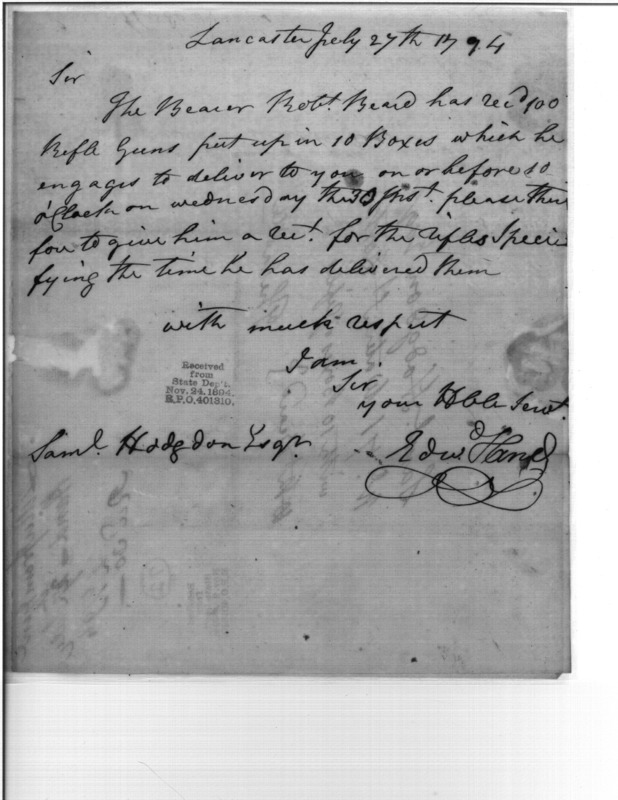 Lancaster July 27th 1794
Sir
The Bearer Robt. Beard has recd 100
Rifle Guns put up in 10 Boxes which he
engages to deliver to you on or before 10
oClock on wednesday the 30 Inst. please there
fore to give him a rect. for the rifles Speci
fying the time he has delivered them
with much respect
I am.
Sir
your Hble Servt.
Received
from
State Dep't.
Nov. 24.1894.
R.P.O.401310.
Saml. Hodgdon Esqr.
Edwd Hand